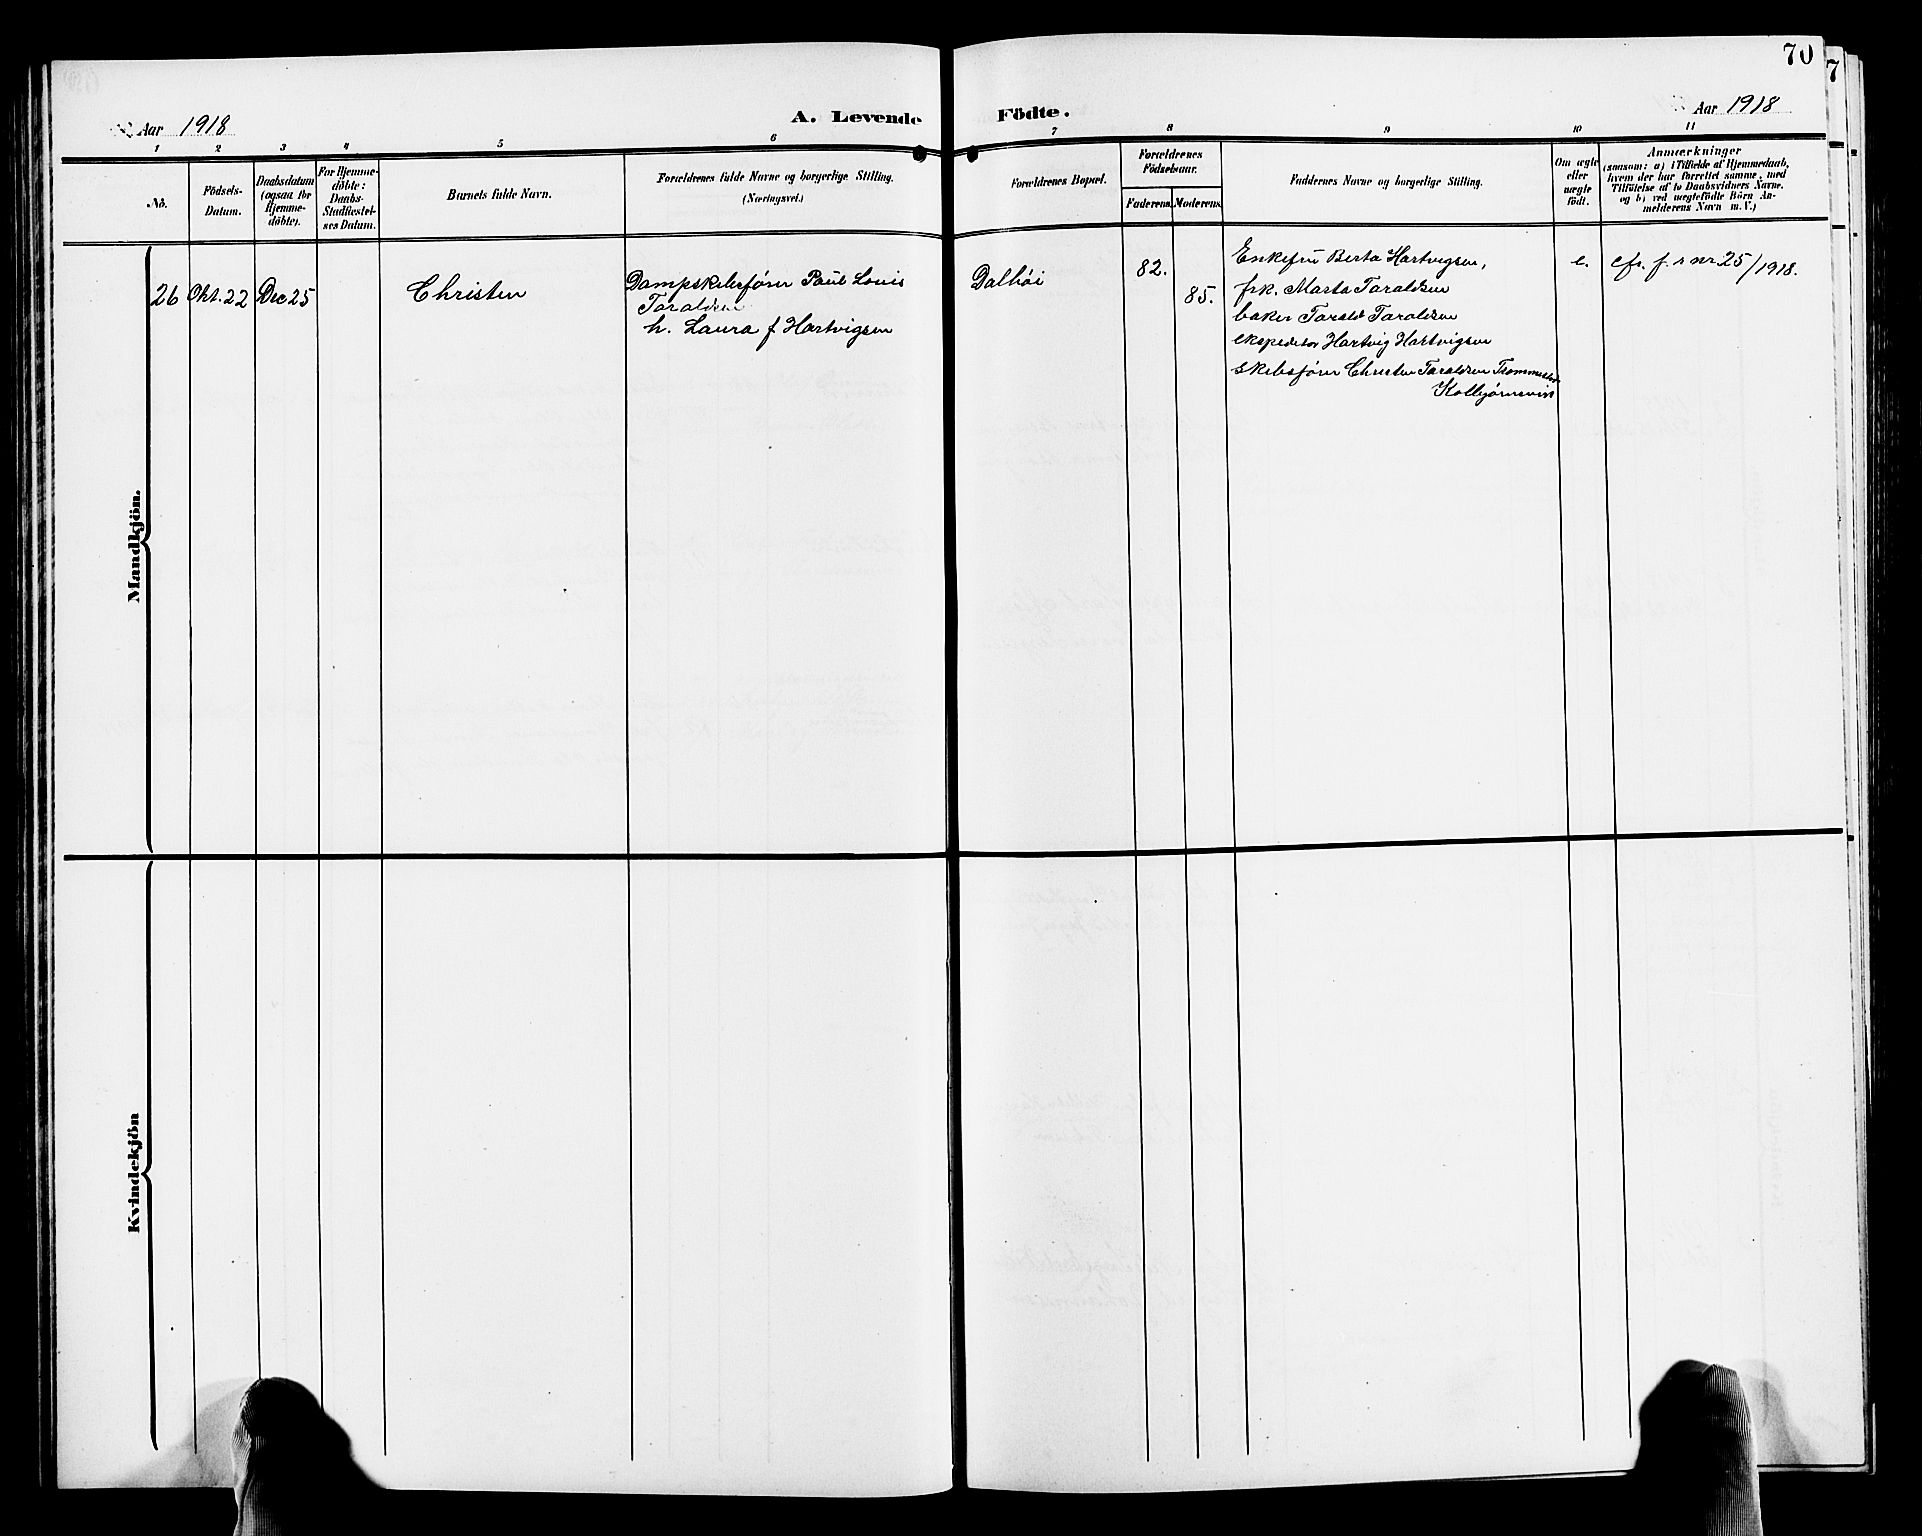 70
7
Aar 1918
A. Levende
Födte.
Aar 1918
1 2 3 4 5 6 7 8 9 10 11
No.
Födsels-
Datum.
Daabsdatum
(ogsaa for
Hjemme-
döbte).
For Hjemme-
döbte:
Daabs-
Stadfæstel-
ses Datum.
Barnets fulde Navn.
Forældrenes fulde Navne og borgerlige Stilling.
(Næringsvei.)
Forældrenes Bopæl.
Forældrenes
Födselsaar.
Faderens.
Moderens.
Faddernes Navne og borgerlige Stilling.
Om ægte
eller
uægte
födt.
Anmærkninger
(saasom: a) i Tilfælde af Hjemmedaab,
hvem der har forrettet samme, med
Tilföielse af to Daabsvidners Navne.
og b) ved uægtefödte Börn An-
melderens Navn m. V.)
Mandkjön.
26
Okt. 22
Dec 25
Christen
Dampskibsfører Paul Louis
Taraldsen
h. Laura f Hartvigsen
Dalhöi
82.
85.
Enkefru Berta Hartvigsen,
frk. Marta Taraldsen
baker Tarald Taraldsen
ekspeditor Hartvig Hartvigsen
skibsfører Christen Taraldsen
Kolbjørnsvik
e.
cfr. f. s nr. 25/1918.
Kvindekjön